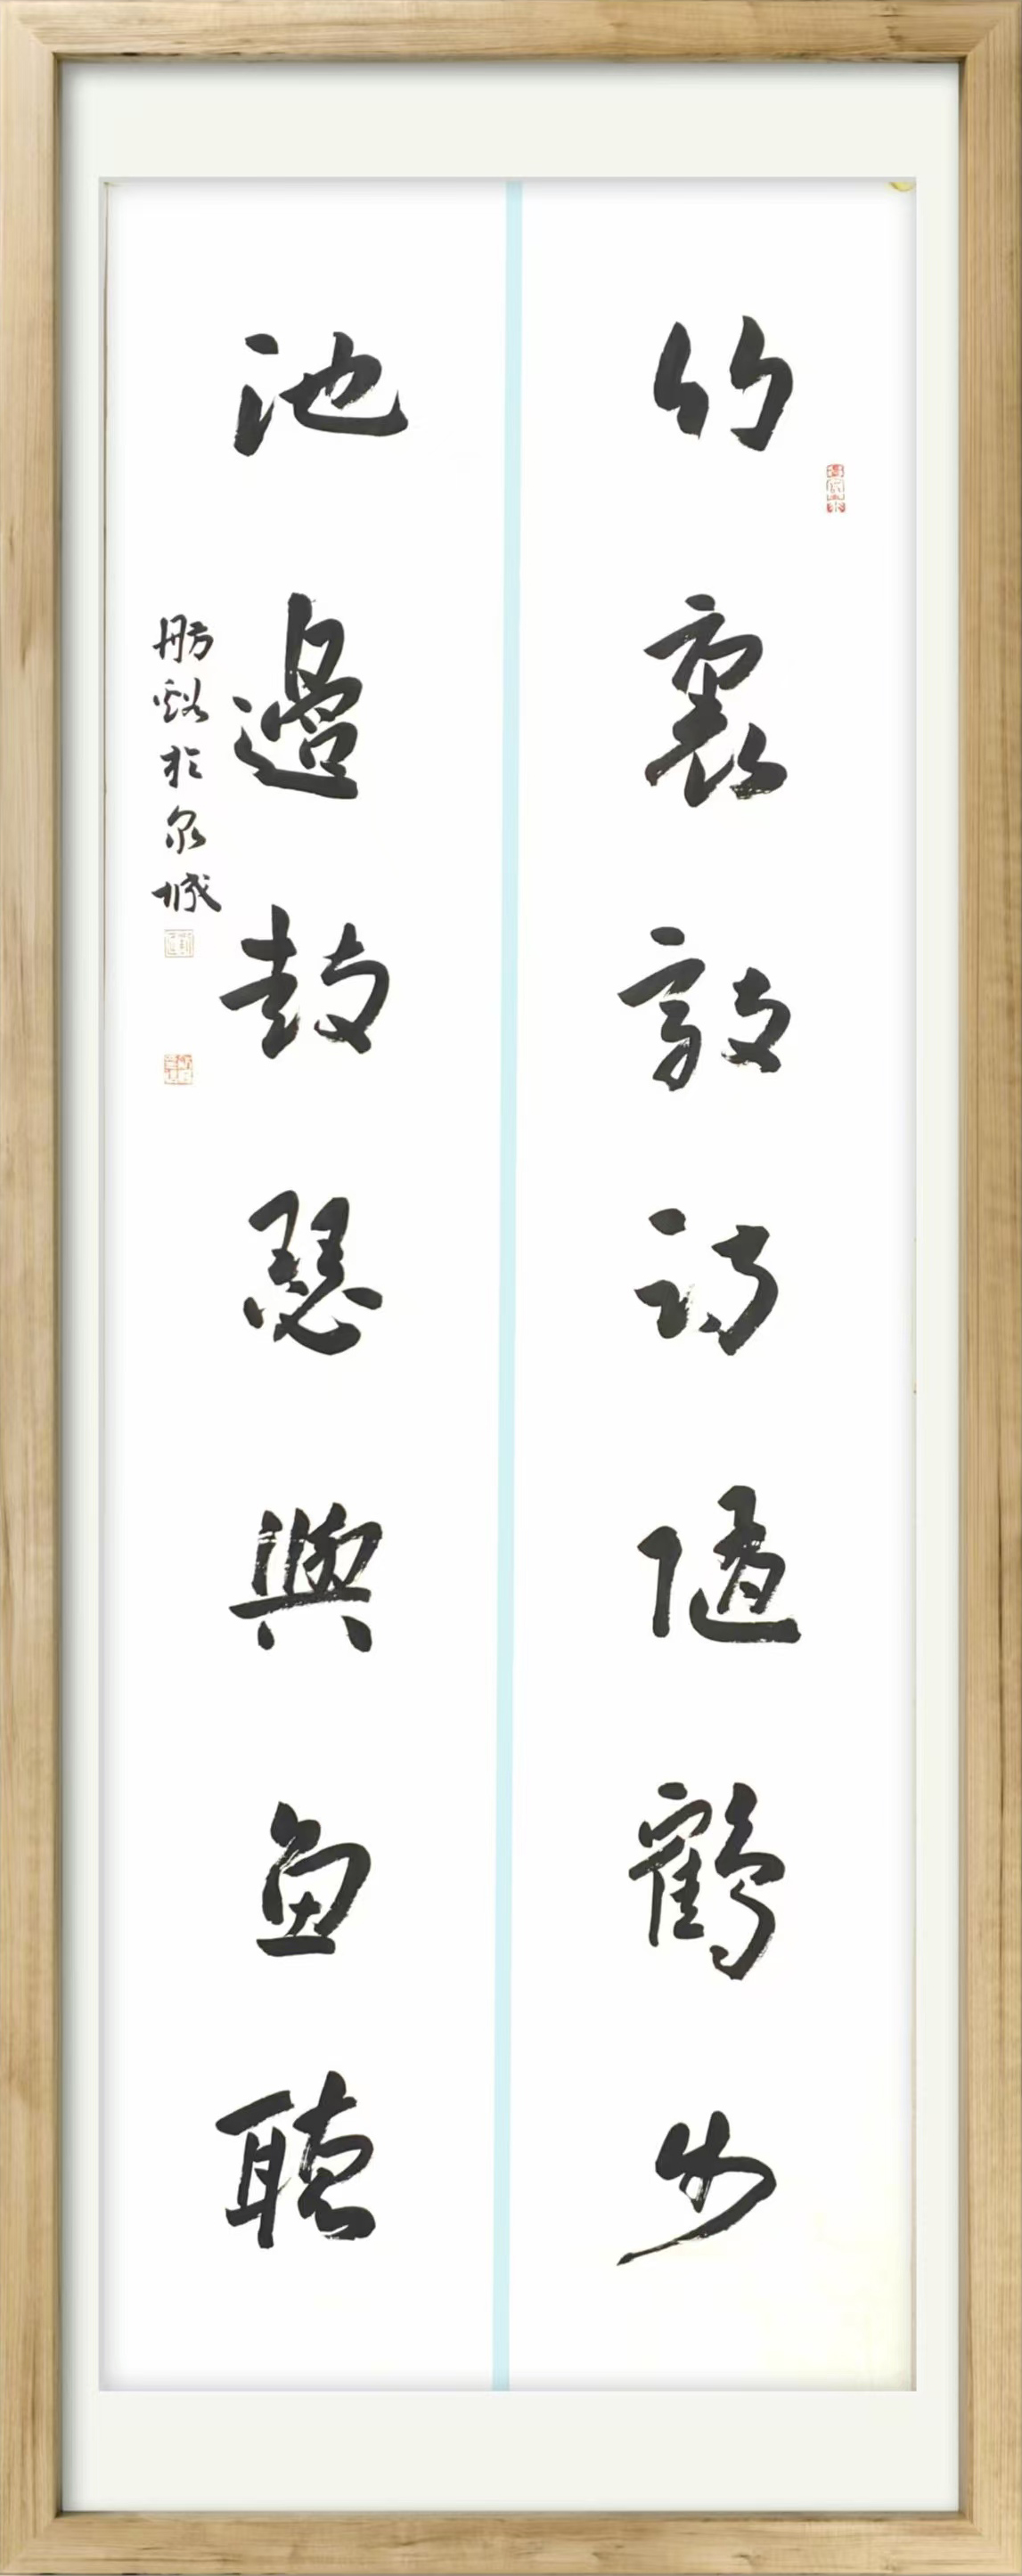 竹裏敲詩随鶴步
池邊鼓瑟與魚聽
舫谿於泉城